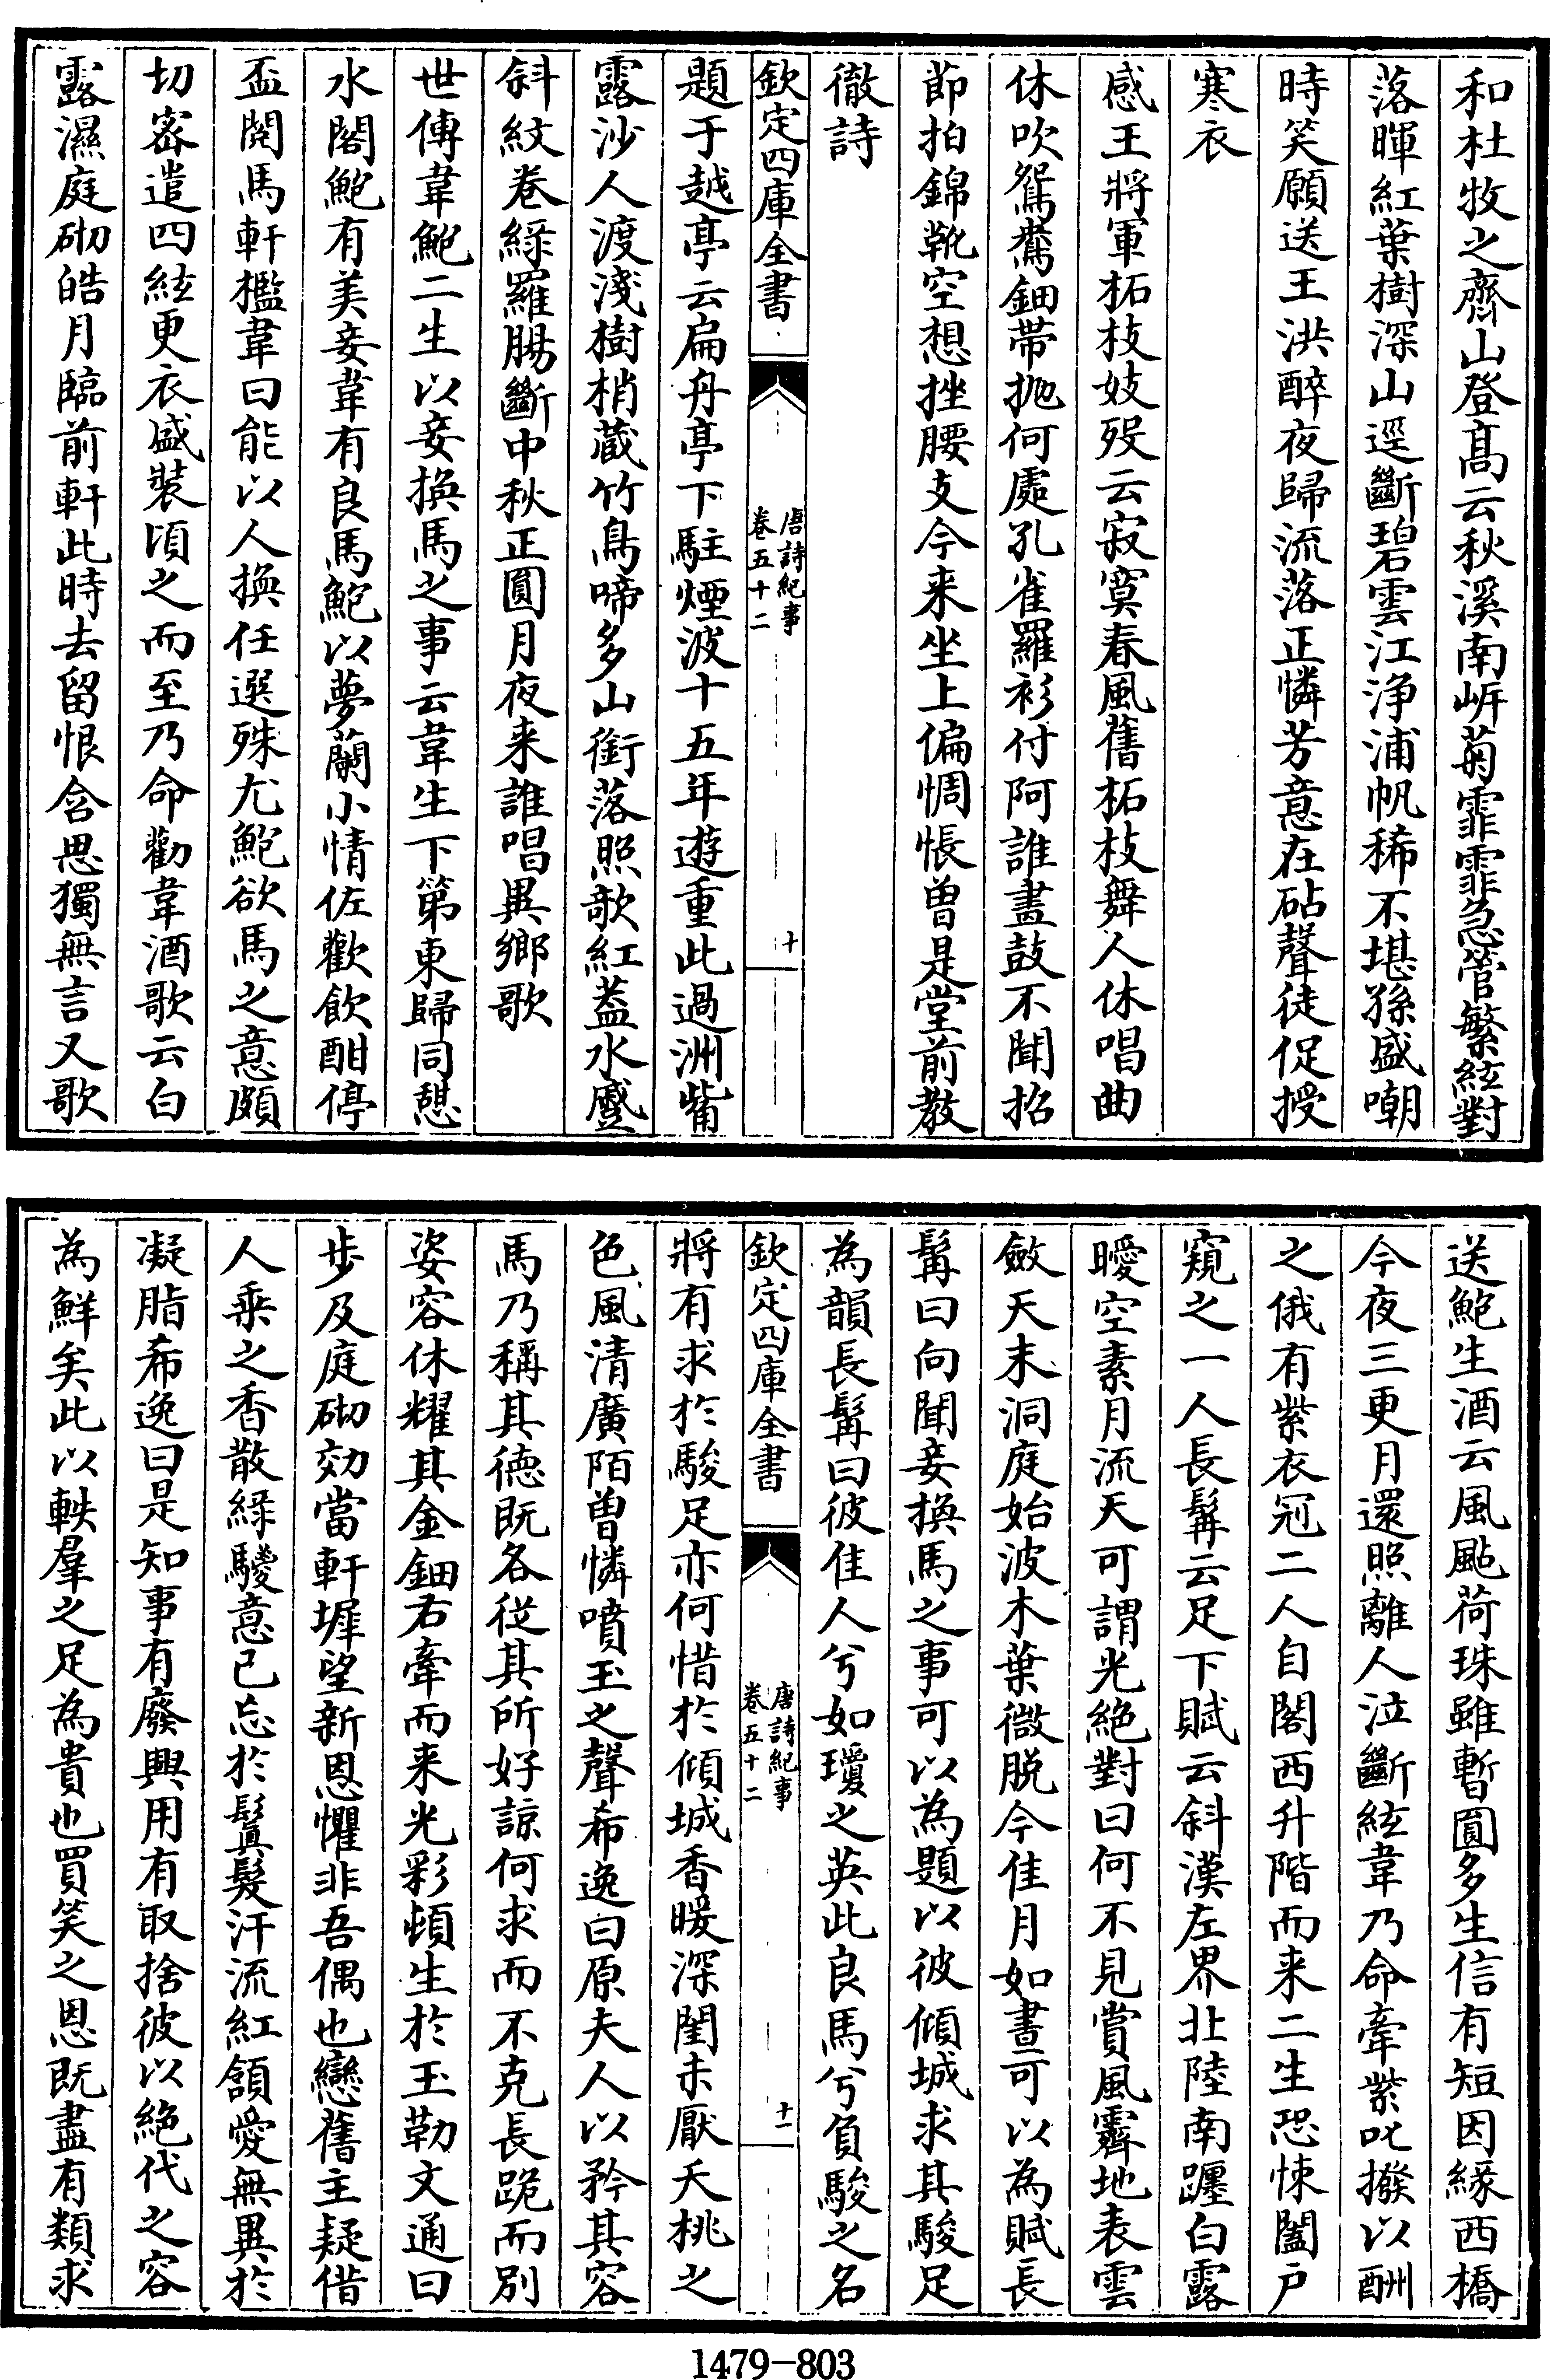 和杜牧之齊山登髙云秋溪南㟁菊霏霏急管繁絃對
落暉紅葉樹深山逕斷碧雲江浄浦帆稀不堪孫盛嘲
時笑願送王洪醉夜歸流落正憐芳意在砧聲徒促授
寒衣
感王將軍柘枝妓歿云寂寞春風舊柘枝舞人休唱曲
休吹鴛鴦鈿帶抛何處孔雀羅衫付阿誰畫鼓不聞招
節拍錦靴空想挫腰支今来坐上偏惆悵曽是堂前教
徹詩
欽定四庫全書
唐詩紀事
卷五十二
十
題于越亭云扁舟亭下駐煙波十五年遊重此過洲觜
露沙人渡淺樹梢蔵竹鳥啼多山銜落照欹紅葢水蹙
斜紋卷緑羅腸斷中秋正圓月夜来誰唱異鄉歌
世傳韋鮑二生以妾換馬之事云韋生下第東歸同憇
水閣鮑有美妾韋有良馬鮑以夢蘭小倩佐歡飲酣停
盃閱馬軒檻韋曰能以人換任選殊尤鮑欲馬之意頗
切密遣四絃更衣盛裝頃之而至乃命勸韋酒歌云白
露濕庭砌皓月臨前軒此時去留恨含思獨無言又歌
送鮑生酒云風颭荷珠雖暫圓多生信有短因緣西橋
今夜三更月還照離人泣斷絃韋乃命牽紫叱撥以酬
之俄有紫衣冠二人自閣西升階而来二生恐悚闔戶
窺之一人長髯云足下賦云斜漢左界北陸南躔白露
曖空素月流天可謂光絶對曰何不見賞風霽地表雲
斂天末洞庭始波木葉微脱今佳月如晝可以為賦長
髯曰向聞妾換馬之事可以為題以彼傾城求其駿足
為韻長髯曰彼佳人兮如瓊之英此良馬兮負駿之名
欽定四庫全書
唐詩紀事
卷五十二
十一
將有求於駿足亦何惜於傾城香暖深閨未厭夭桃之
色風清廣陌曽憐噴玉之聲希逸曰原夫人以矜其容
馬乃稱其徳既各從其所好諒何求而不克長跪而别
姿容休耀其金鈿右牽而来光彩頓生於玉勒文通曰
步及庭砌効當軒墀望新恩懼非吾偶也戀舊主疑借
人乘之香散緑騣意已忘於鬒髮汗流紅頷愛無異於
凝脂希逸曰是知事有廢興用有取捨彼以絶代之容
為鮮矣此以軼羣之足為貴也買笑之恩既盡有類求
1479-803